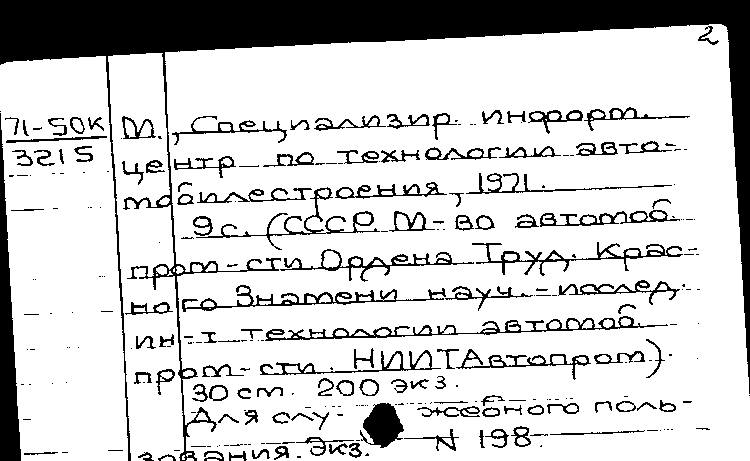 2
71-50к
3215
М., Специализир. информ.
центр по технологии авто-
мобилестроения, 1971.
9с. (СССР. М-во автомоб.
пром-сти. Ордена Труд. Крас-
ного Знамени науч.-послед.
ин-т технологии автомоб.
пром-сти. НИИТАвтопром).
30 см. 200 экз.
Для слу- жебного поль-
зования. Экз. N 198.